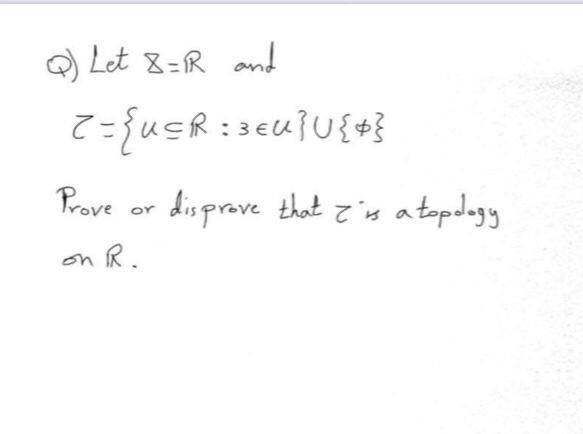 Q) Let X=ℝ and
τ={U⊆ℝ : 3∈U}∪{ϕ}
Prove or disprove that τ is a topology
on ℝ.